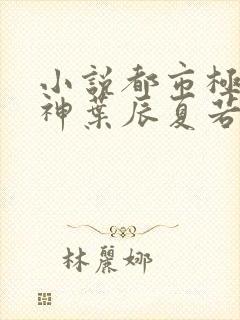 小説都市極
神葉辰夏若
林麗娜